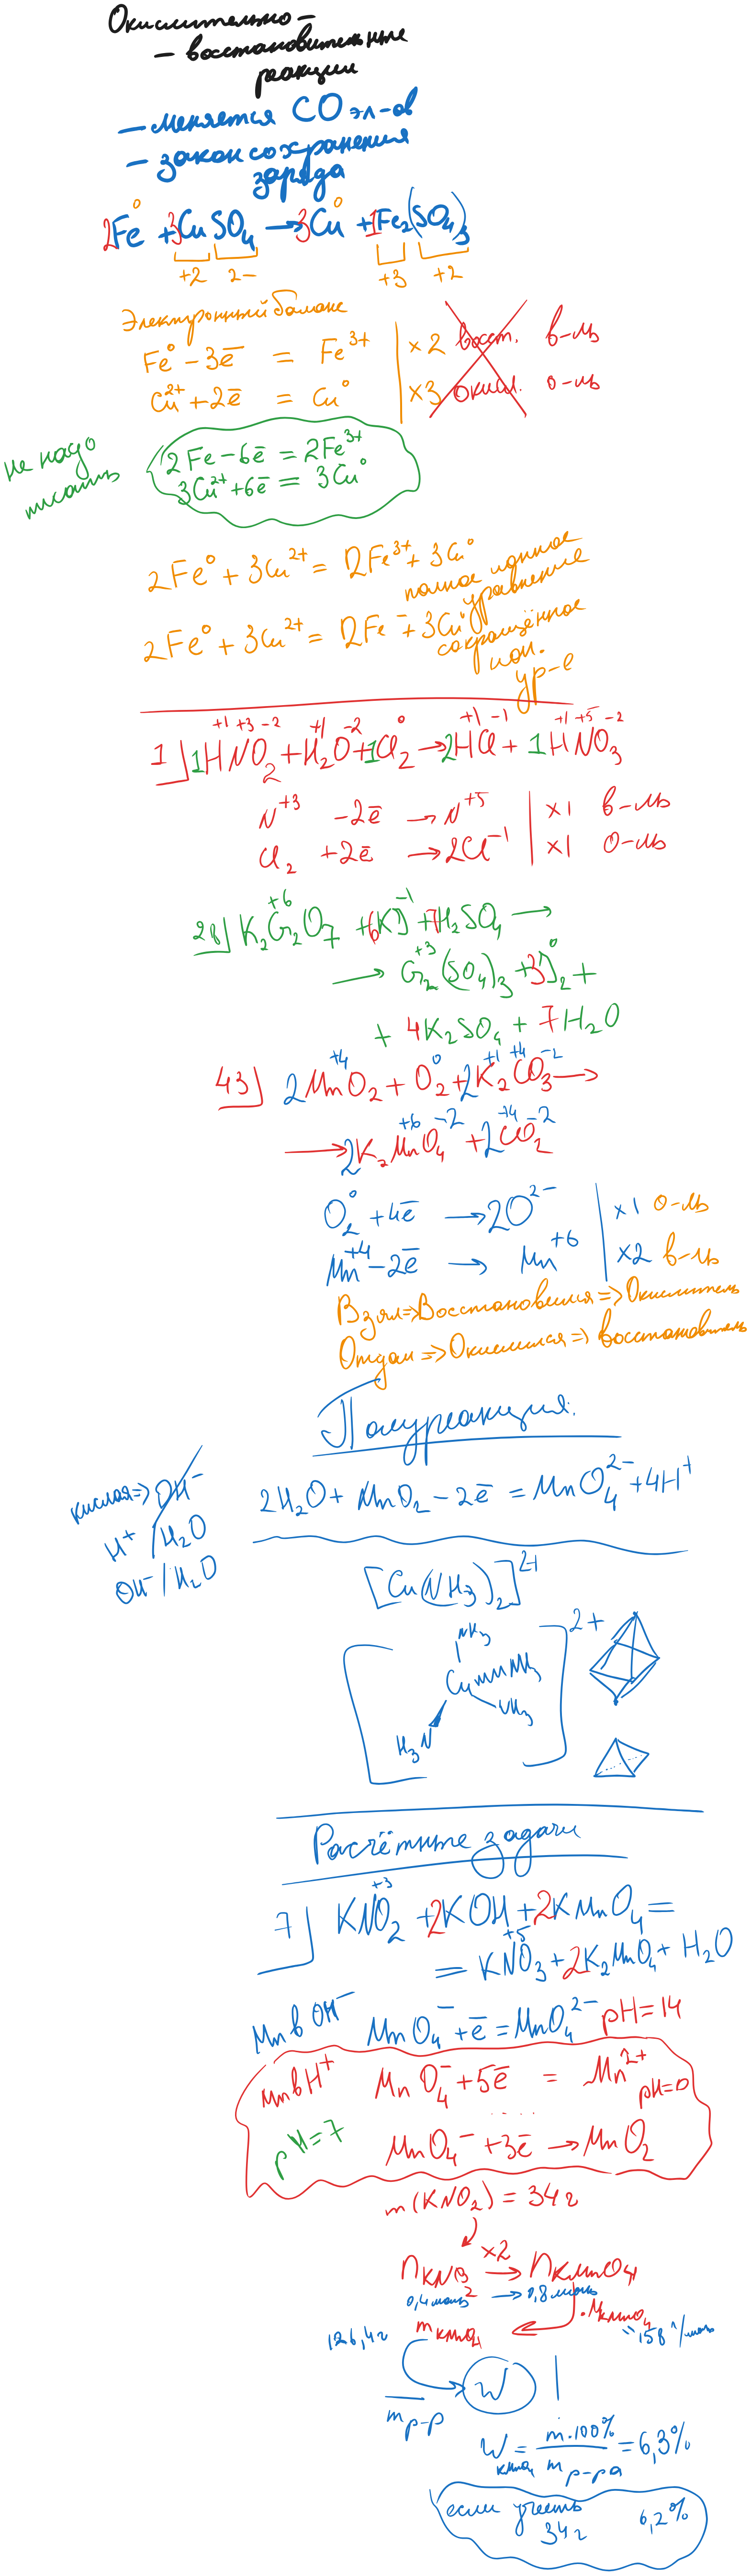 Окислительно-
- восстановительные
реакции
- меняется СО эл-ов
- закон сохранения
заряда
2Fe⁰ + 3CuSO₄ → 3Cu⁰ + 1Fe₂(SO₄)₃
+2 2- +3 +2
Электронный баланс
Fe⁰ - 3ē = Fe³⁺ | ×2 восст. в-ль
Cu²⁺ + 2ē = Cu⁰ | ×3 окисл. о-ль
не надо
писать
2Fe - 6ē = 2Fe³⁺
3Cu²⁺ + 6ē = 3Cu⁰
2Fe⁰ + 3Cu²⁺ = 2Fe³⁺ + 3Cu⁰
полное ионное
уравнение
2Fe⁰ + 3Cu²⁺ = 2Fe⁻ + 3Cu⁰
сокращённое
ион.
ур-е
+1 +3 -2 +1 -2 0 +1 -1 +1 +5 -2
1] 1HNO₂ + H₂O + 1Cl₂ → 2HCl + 1HNO₃
N⁺³ - 2ē → N⁺⁵ | ×1 в-ль
Cl₂ + 2ē → 2Cl⁻¹ | ×1 о-ль
+6 -1
28] K₂Cr₂O₇ + 6KJ + 7H₂SO₄ →
+3 0
→ Cr₂(SO₄)₃ + 3J₂ +
+ 4K₂SO₄ + 7H₂O
+4 0 +1 +4 -2
43] 2MnO₂ + O₂ + 2K₂CO₃ →
+6 -2 +4 -2
→ 2K₂MnO₄ + 2CO₂
O₂⁰ + 4ē → 2O²⁻ | ×1 о-ль
Mn⁺⁴ - 2ē → Mn⁺⁶ | ×2 в-ль
Взял => Восстановился => Окислитель
Отдал => Окислился => восстановитель
Полуреакция.
кислая => OH⁻
H⁺/H₂O
OH⁻/H₂O
2H₂O + MnO₂ - 2ē = MnO₄²⁻ + 4H⁺
[Cu(NH₃)₂]²⁺
2+
NH₃
Cu NH₃
NH₃
H₃N
Расчётные задачи
+3
7] KNO₂ + 2KOH + 2KMnO₄ =
+5
= KNO₃ + 2K₂MnO₄ + H₂O
Mn в OH⁻ MnO₄⁻ + ē = MnO₄²⁻ pH=14
Mn в H⁺ MnO₄⁻ + 5ē = Mn²⁺ pH=0
pH=7 MnO₄⁻ + 3ē → MnO₂
m(KNO₂) = 34г
n KNO₂ ×2 → n KMnO₄
0,4 моль → 0,8 моль
·M KMnO₄
=158 г/моль
126,4г m KMnO₄
m р-р
W
W KMnO₄ = m·100% / m р-ра = 6,3%
если учесть
34г 6,2%